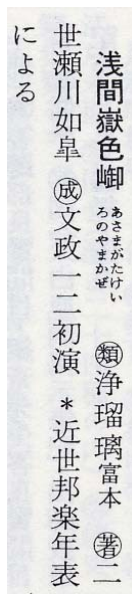 浅間嶽色𡸴 あさまがたけいろのやまかぜ ㊣類 浄瑠璃富本 ㊣著 二
世瀬川如皐 ㊣成 文政一二初演 *近世邦楽年表
による